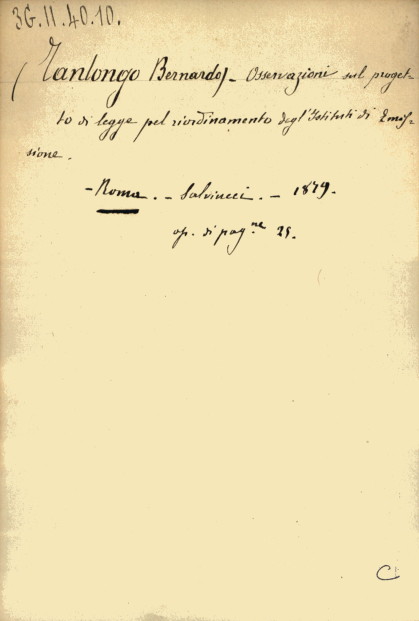 36.11.40.10.
(Tanlongo Bernardo) - Osservazioni sul proget-
to di legge pel riordinamento degl'Istituti di Emis-
sione.
- Roma. - Salviucci. - 1879.
op. di pag.ne 25.
C